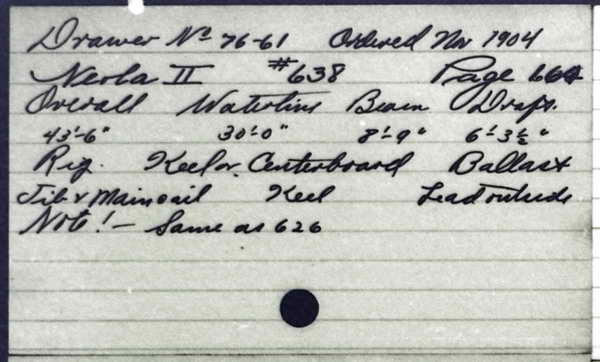 Drawer No 76-61 Ordered Nov 1904
Nerla II #638 Page 664
Overall Waterline Beam Draft.
43'-6" 30'-0" 8'-9" 6'-3½"
Rig. Keel or Centerboard Ballast
Jib & Mainsail Keel Lead outside
Note! - Same as 626